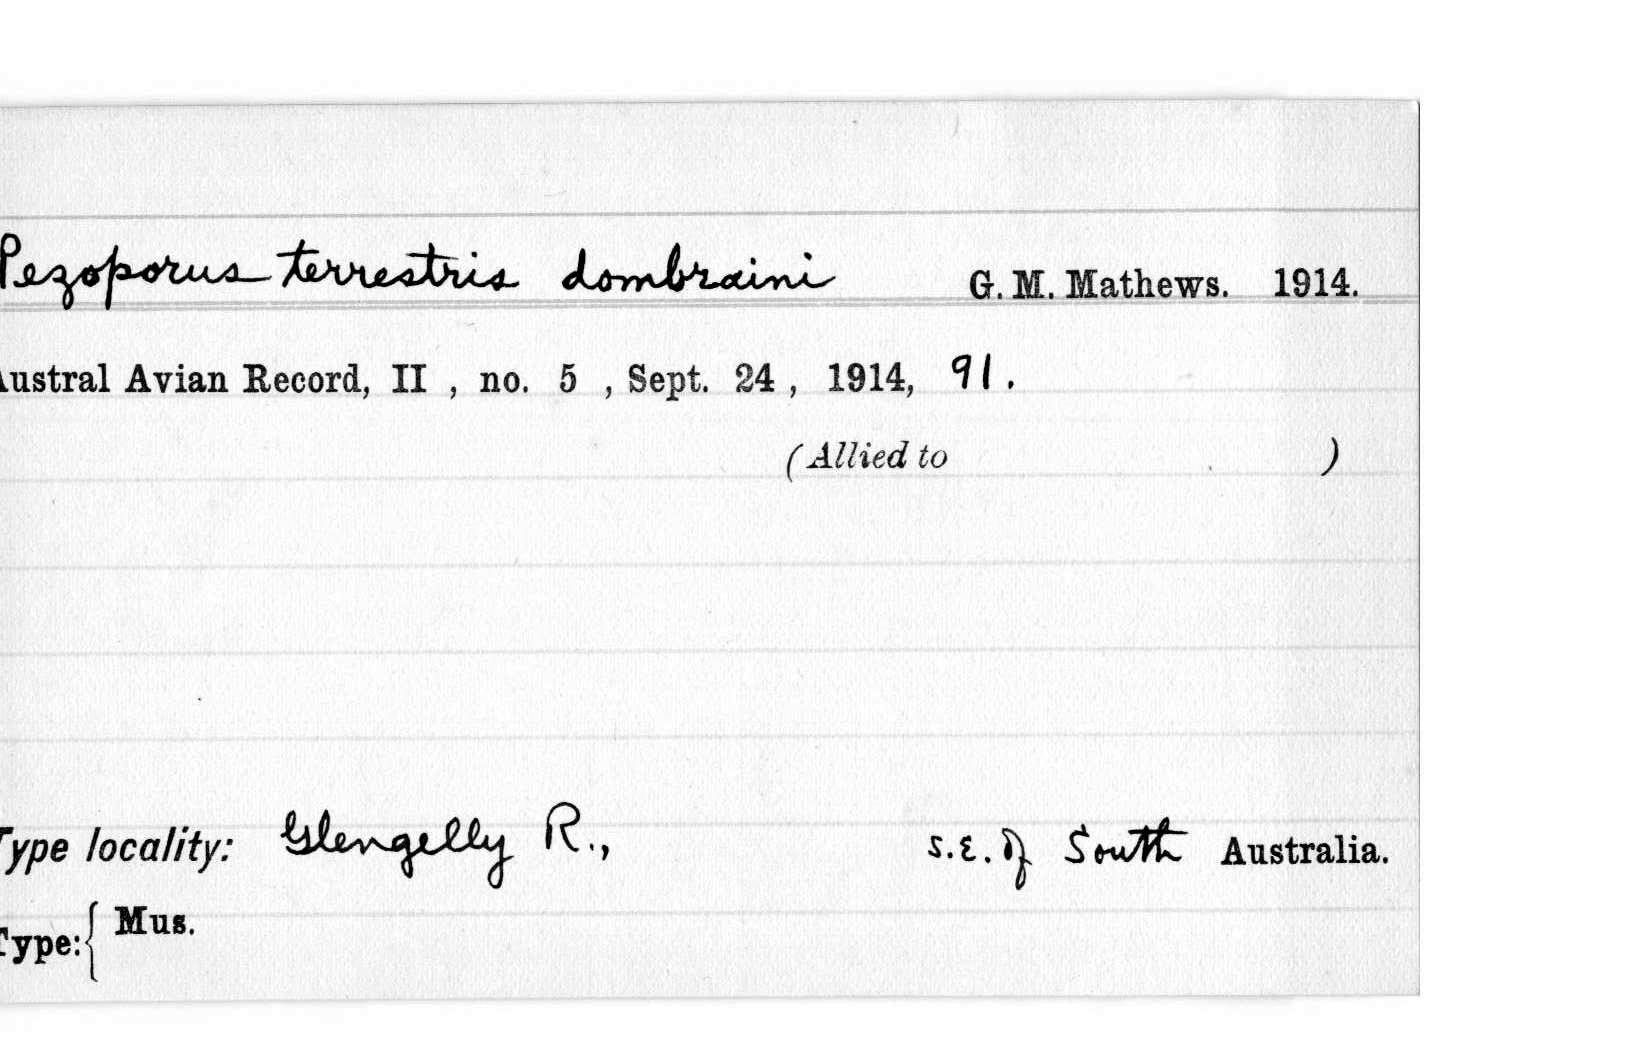 Pezoporus terrestris dombraini G. M. Mathews. 1914.
Austral Avian Record, II , no. 5 , Sept. 24 , 1914, 91.
(Allied to )
Type locality: Glengelly R., S.E. of South Australia.
Type: { Mus.